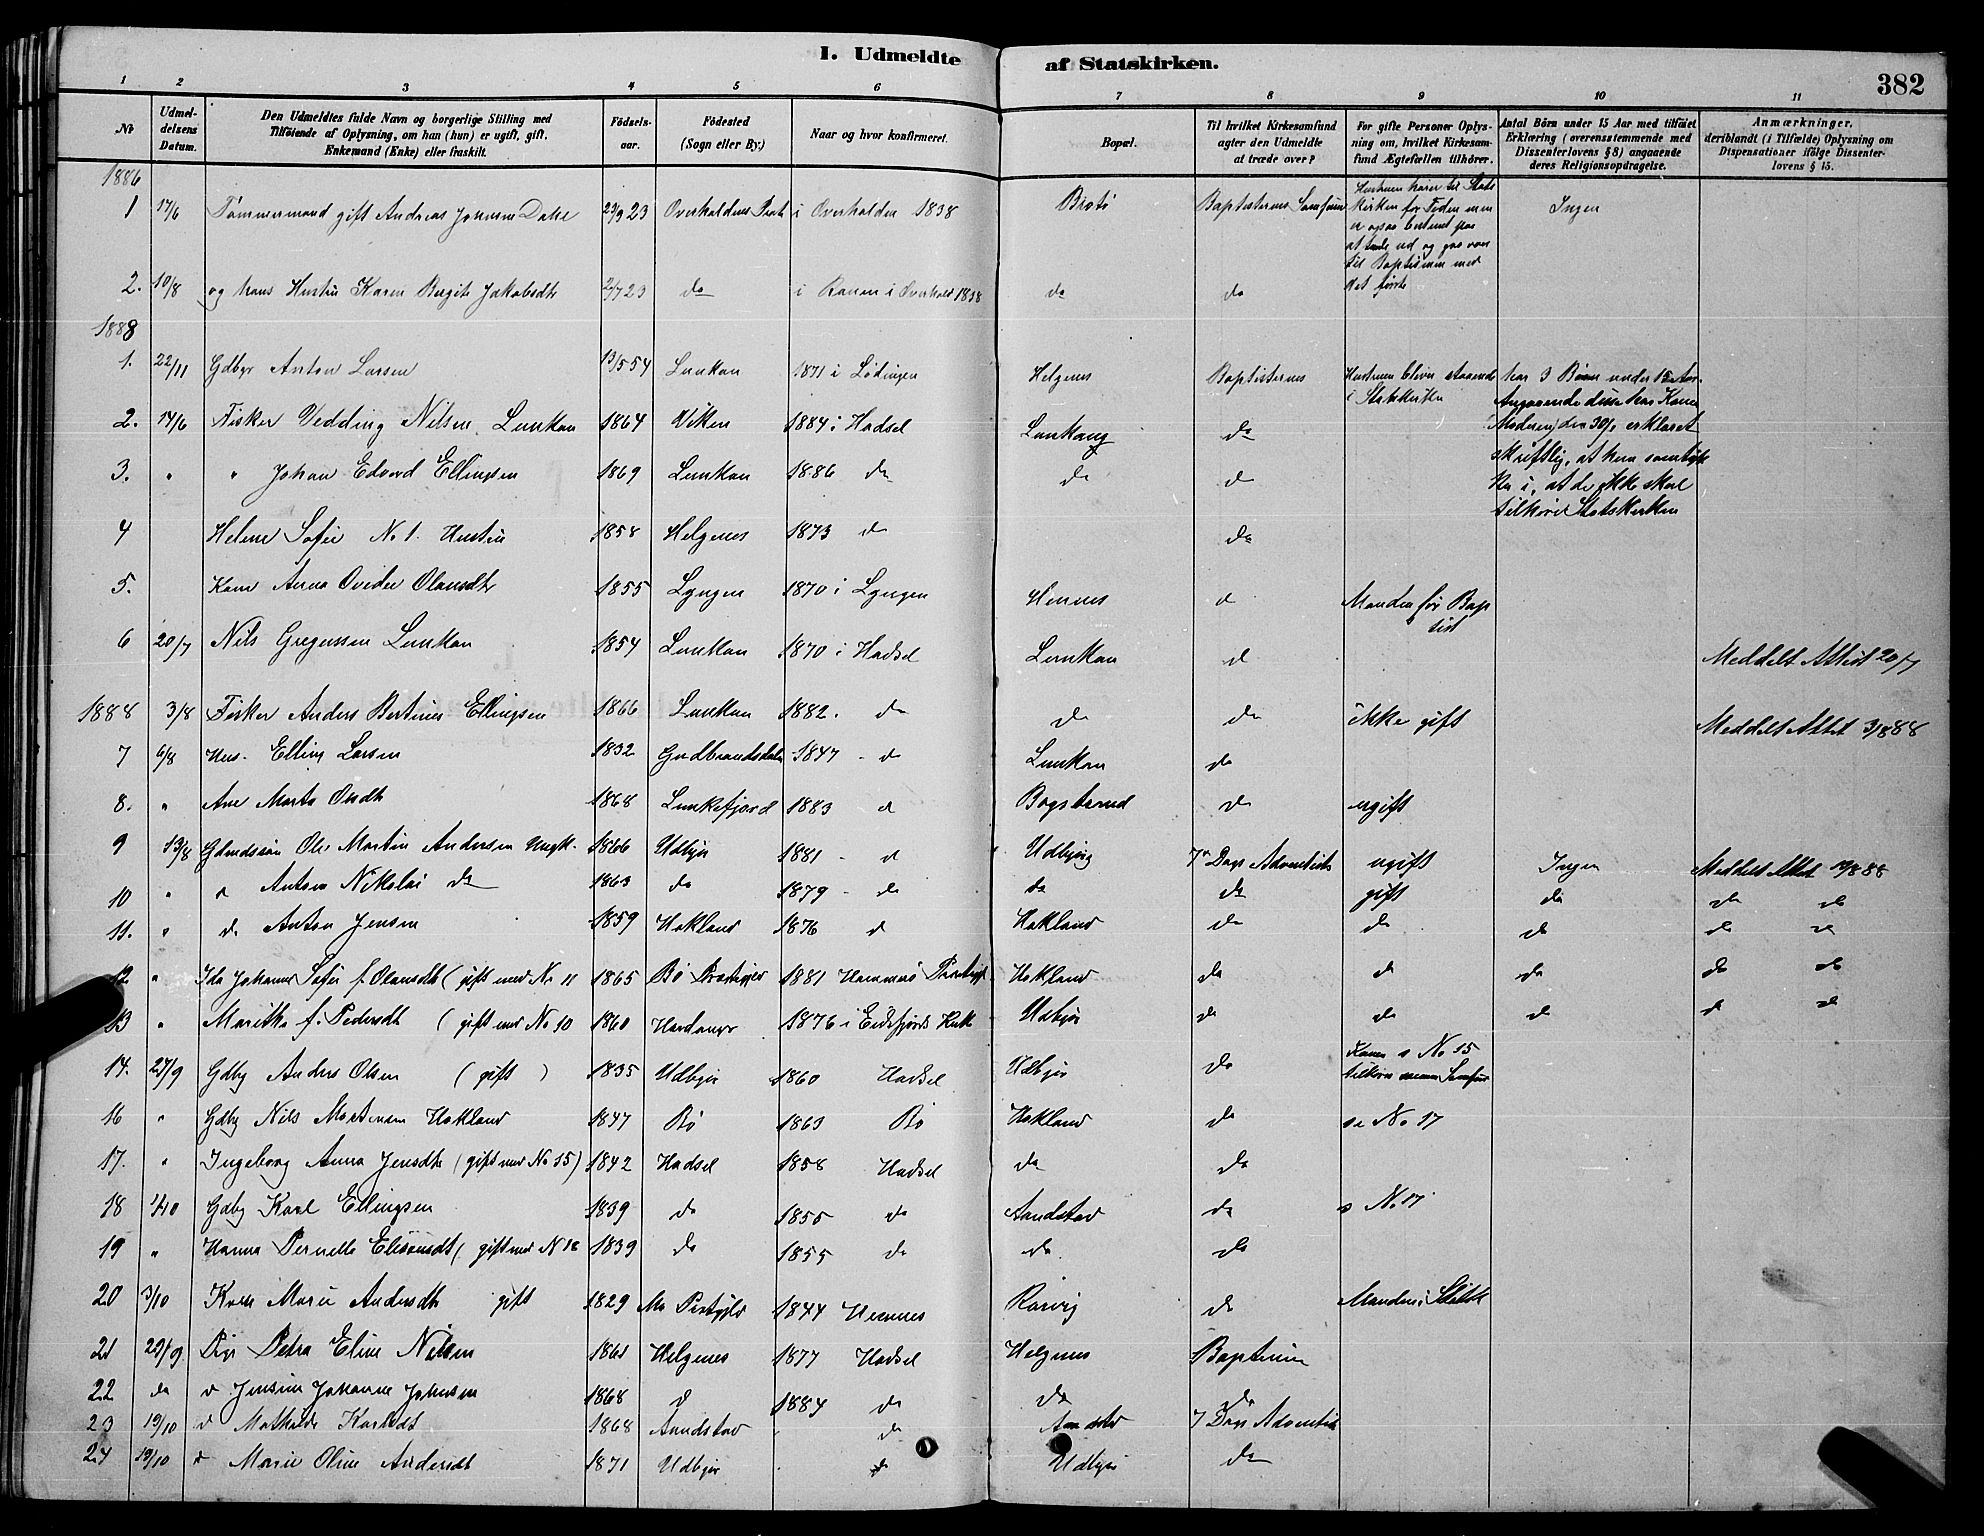 I. Udmeldte af Statskirken.
382
1 2 3 4 5 6 7 8 9 10 11
No
Udmeldelsens Datum.
Den Udmeldtes fulde Navn og borgerlige Stilling med Tilføiende af Oplysning, om han (hun) er ugift, gift, Enkemand (Enke) eller fraskilt.
Fødselsaar.
Fødested (Sogn eller By.)
Naar og hvor konfirmeret.
Bopæl.
Til hvilket Kirkesamfund agter den Udmeldte at træde over?
For gifte Personer Oplysning om, hvilket Kirkesamfund Ægtefællen tilhører.
Antal Børn under 15 Aar med tilføiet Erklæring (overensstemmende med Dissenterlovens § 8) angaaende deres Religionsopdragelse.
Anmærkninger, deriblandt (i Tilfælde) Oplysning om Dispensationer ifølge Dissenterlovens § 15.
1886
1 17/6 Tømmermand gift Andreas Johnsen 23/9 23 Overhalden i Overhalden 1838 Brotø Baptisternes Samfund Hustruen hører til Statskirken for Tiden men er ogsaa bestemt paa at træde ud og gaa over til Baptismen med det første Ingen
2. 10/8 og hans Hustru Karen Birgit Jakobsdtr 2/7 23 do i Ranem i Overhald 1838 do do
1888
1. 22/11 Gdbgr Anton Larsen 13/5 54 Lunkan 1871 i Lødingen Helgenes Baptisternes Hustruen bliver staaende i Statskirken har 3 Børn under 15 Aar. Angaaende disse har Konen (Moderen) den 30/ erklæret skriftlig, at hun samtykker i, at de ikke skal tilhøre Statskirken
2. 14/6 Fisker Vedding Nilsen Lunkan 1864 Viken 1884 i Hadsel Lunkang do
3. " " Johan Edvard Ellingsen 1869 Lunkan 1886 do do do
4 Helene Sofie No 1. Hustru 1858 Helgenes 1873 do do
5. Kone Anna Ovidie Olausdtr 1855 Lyngen 1870 i Lyngen Hennes d Manden før Baptist
6 20/7 Nils Gregussen Lunkan 1854 Lunkan 1870 i Hadsel Lunkan d Meddelt Attest 20/7
1888 3/8 Fisker Anders Bertinus Ellingsen 1866 Lunkan 1882. do do do ikke gift Meddelt Attest 3/8 88
7 6/8 Hus. Elling Larsen 1832 Gudbrandsdalen 1847 - do Lunkan do
8. " Ane Marta Olsdtr 1868 Lunkefjord 1883 d do ugift
9 13/8 Gdmdssøn Ole Martin Andersen Ungk. 1866 Udbjør 1881 - d Udbjørg 7de Dags Adventister ugift Ingen Meddelt Attest
10 " d Anton Nikolai do 1863 do 1879 - do do do gift do do do
11. " d. Anton Jensen 1859 Hokland 1876 d Hokland do do do do do
12. " Ida Johanna Sofie f. Olausdtr (gift med No 11 1865 Bø Prestegjeld 1881 Hammerø Hokland do do do do do
13 " Maritha f. Pedersdt (gift med No 10 1860 Hardanger 1876 i Eidsfjord Udbjør do do do d do
14. 27/9 Gdbg Anders Olsen (gift) 1835 Udbjør 1860 Hadsel Udbjør do Konen s No 15 Samfund
16 " Gdbg Nils Mortensen Hokland 1847 Bø 1863 Bø Hokland do se No 17
17. " Ingeborg Anna Jensdtr (gift med No 15) 1842 Hadsel 1858 Hadsel do do
18 4/10 Gdbg Karl Ellingsen 1839 do 1855 do Sandstad do s No 17
19 " Hanna Pernelle Elisæusdt (gift med N 18 1839 do 1855 do do do
20 3/10 Karen Marie Andersdtr gift 1829 Mo 1844 Hemnes Rørvig do Manden i
21 29/9 Pige Petra Eline Nilsen 1861 Helgenes 1877 Hadsel Helgenes Baptisme
22 do d Jensine Johanne Johnsen 1868 d 1884 do do do
23 19/10 d Mathilde Karlsdt 1868 Sandstad " do 7 Dags Adventist
24 19/10 d Marie Oline Andersdt 1871 Udbjør . do Udbjør do